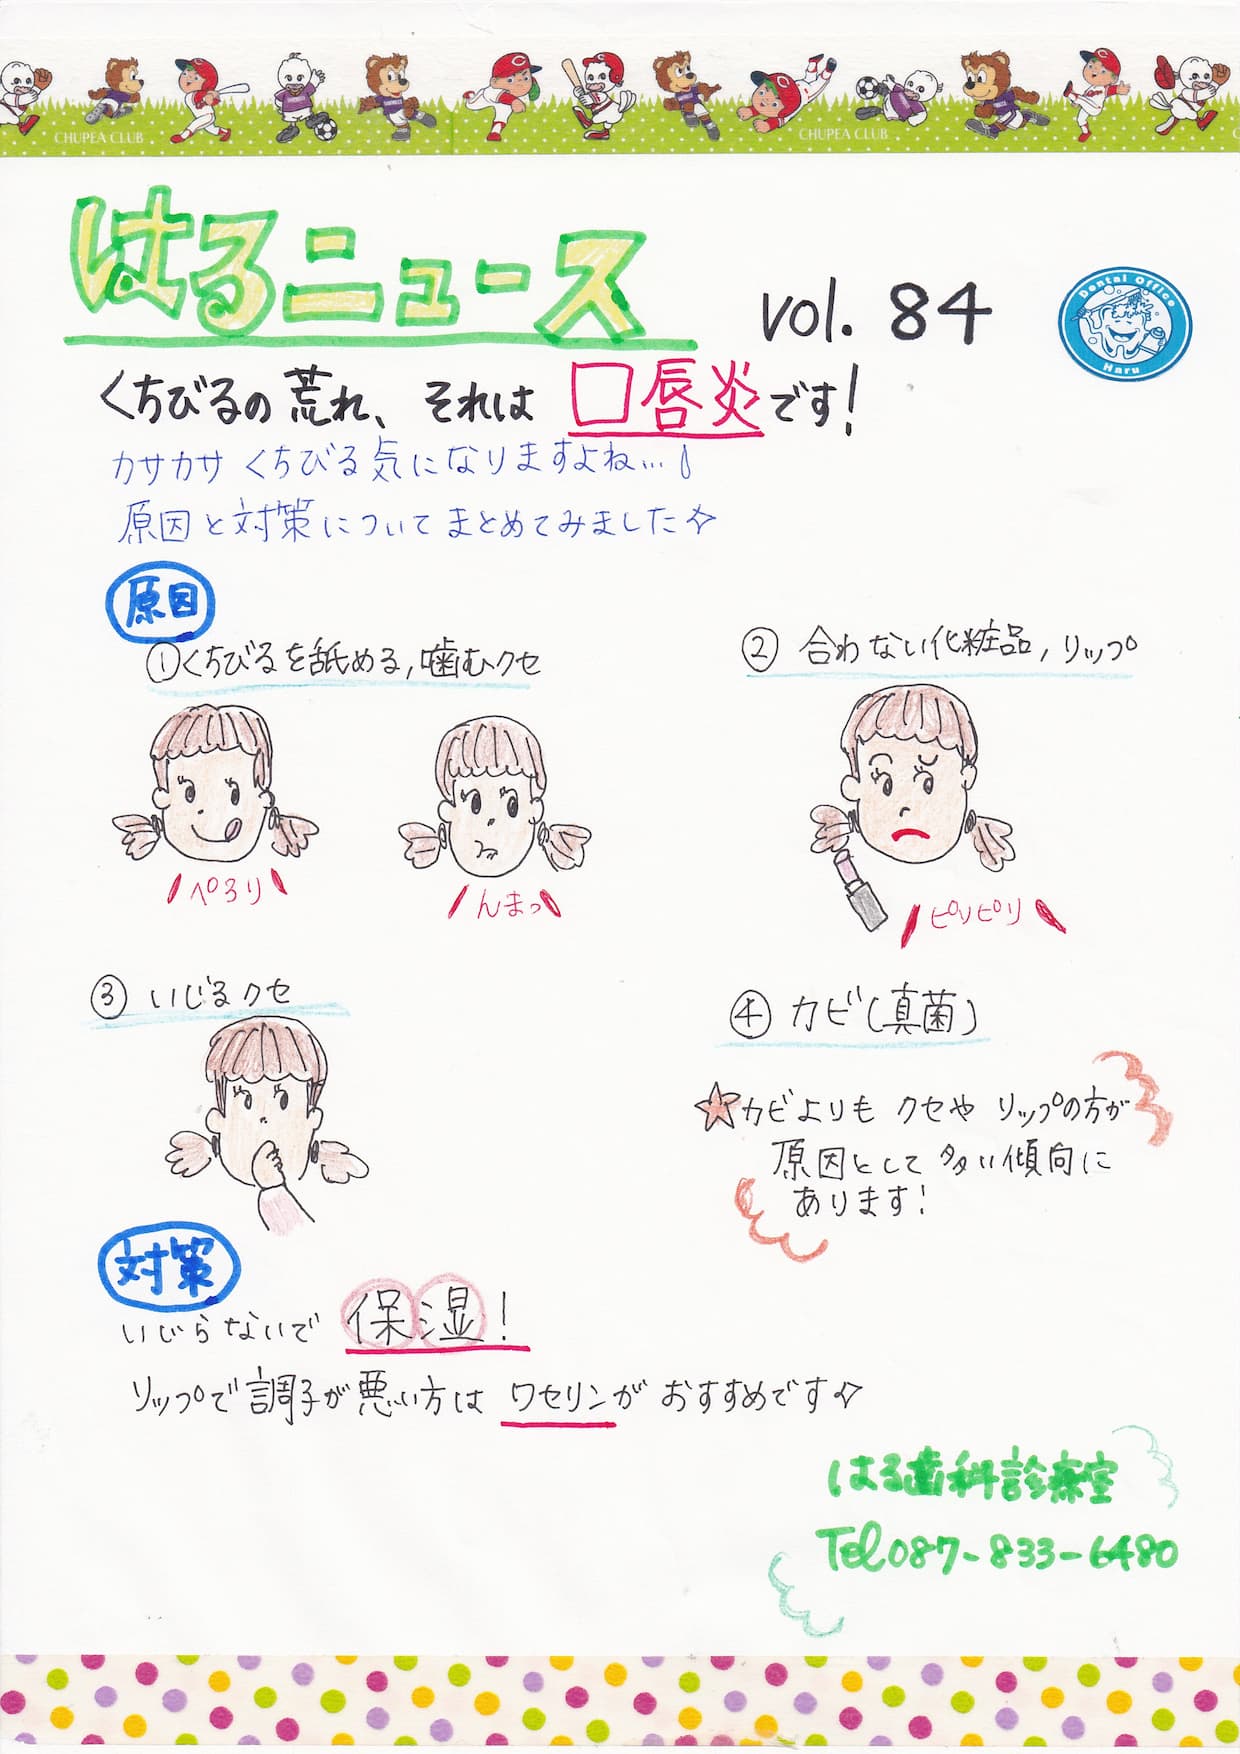 CHUPEA CLUB CHUPEA CLUB
はるニュース vol. 84
Dental Office
Haru
くちびるの荒れ、それは 口唇炎です!
カサカサ くちびる気になりますよね…
原因と対策についてまとめてみました☆
原因
①くちびるを舐める,噛むクセ
②合わない化粧品,リップ
ぺろり
んまっ
ピリピリ
③いじるクセ
④カビ(真菌)
☆カビよりも クセや リップの方が
原因として 多い傾向に
あります!
対策
いじらないで 保湿!
リップで調子が悪い方は ワセリンが おすすめです☆
はる歯科診療室
Tel087-833-6480